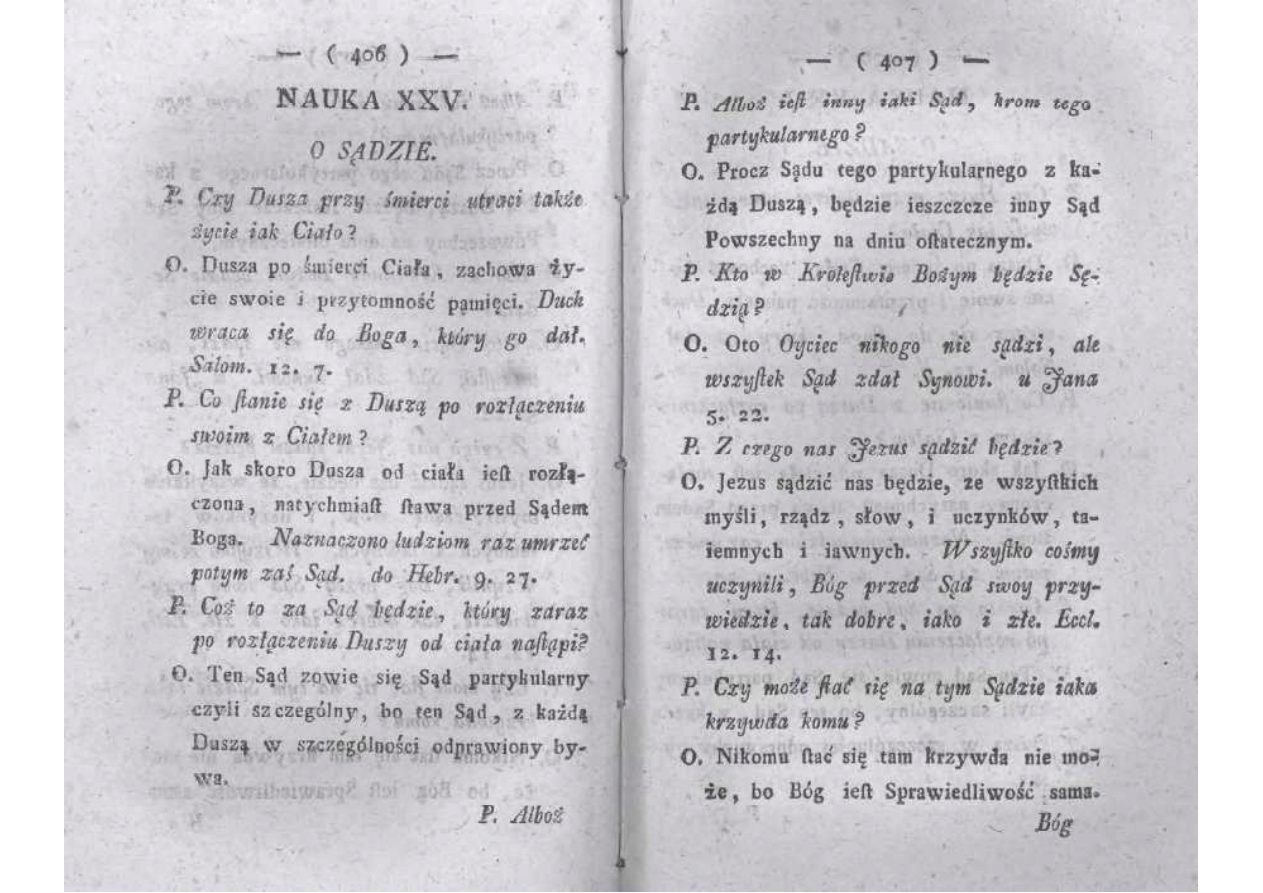 — ( 406 ) —
NAUKA XXV.
O SĄDZIE.
P. Czy Dusza przy śmierci utraci także
życie iak Ciało?
O. Dusza po śmierci Ciała, zachowa ży-
cie swoie i przytomność pąmięci. Duch
wraca się do Boga, który go dał.
Salom. 12. 7.
P. Co ſtanie się z Duszą po rozłączeniu
swoim z Ciałem?
O. Jak skoro Dusza od ciała ieſt rozłą-
czona, natychmiaſt ſtawa przed Sądem
Boga. Naznaczono ludziom raz umrzeć
potym zaś Sąd. do Hebr. 9. 27.
P. Coż to za Sąd będzie, który zaraz
po rozłączeniu Duszy od ciała naſtąpi?
O. Ten Sąd zowie się Sąd partykularny
czyli szczególny, bo ten Sąd, z każdą
Duszą w szczególności odprawiony by-
wa.
P. Alboż
— ( 407 ) —
P. Alboż ieſt inny iaki Sąd, krom tego
partykularnego?
O. Procz Sądu tego partykularnego z ka-
żdą Duszą, będzie ieszczcze inny Sąd
Powszechny na dniu oſtatecznym.
P. Kto w Kroleſtwie Bożym będzie Sę-
dzią?
O. Oto Oyciec nikogo nie sądzi, ale
wszyſtek Sąd zdał Synowi. u Jana
5. 22.
P. Z czego nas Jezus sądzić będzie?
O. Jezus sądzić nas będzie, ze wszyſtkich
myśli, rządz, słow, i uczynków, ta-
iemnych i iawnych. Wszyſtko cośmy
uczynili, Bóg przed Sąd swoy przy-
wiedzie, tak dobre, iako i złe. Eccl.
12. 14.
P. Czy może ſtać się na tym Sądzie iaka
krzywda komu?
O. Nikomu ſtać się tam krzywda nie mo-
że, bo Bóg ieſt Sprawiedliwość sama.
Bóg